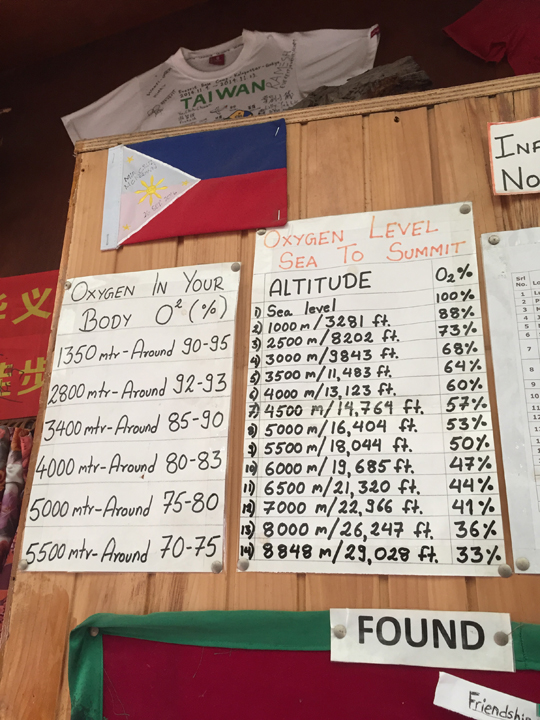 TAIWAN
INF
NO
OXYGEN IN YOUR
BODY O² (%)
1350 mtr-Around 90-95
2800 mtr-Around 92-93
3400 mtr-Around 85-90
4000 mtr-Around 80-83
5000 mtr-Around 75-80
5500 mtr-Around 70-75
OXYGEN LEVEL
SEA TO SUMMIT
ALTITUDE O2%
1) Sea level 100%
2) 1000 m/3281 ft. 88%
3) 2500 m/8202 ft. 73%
4) 3000 m/9843 ft. 68%
5) 3500 m/11,483 ft. 64%
6) 4000 m/13,123 ft. 60%
7) 4500 m/14,764 ft. 57%
8) 5000 m/16,404 ft. 53%
9) 5500 m/18,044 ft. 50%
10) 6000 m/19,685 ft. 47%
11) 6500 m/21,320 ft. 44%
12) 7000 m/22,966 ft. 41%
13) 8000 m/26,247 ft. 36%
14) 8848 m/29,028 ft. 33%
Srl
No.
1
2
3
4
5
6
7
8
华义
徒步
FOUND
Friendship